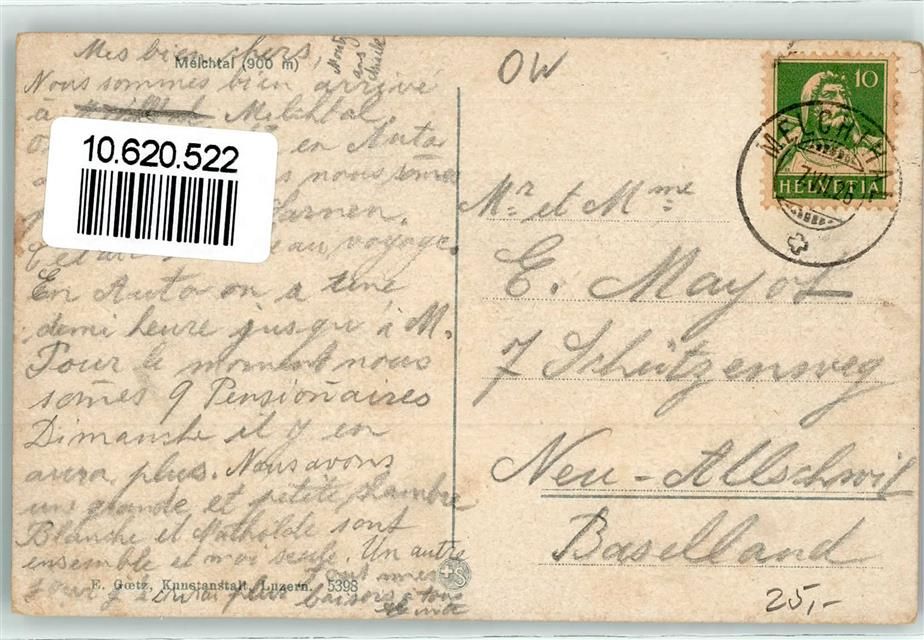 Mes bien chers,
Melchtal (900 m)
Nous sommes bien arrivé
à Melchtal.
en Auto
nous sommes
Sarnen.
beau voyage.
En Auto on a une
demi heure jusqu'à M.
Pour le moment nous
som̄es 9 Pensioñaires
Dimanche il y en
aura plus. Nous avons
une grande et petite chambre
Blanche et Mathilde sont
ensemble et moi seule. Un autre
jour j'écrirai plus
baisers à tous
E. Gœtz, Kunstanstalt, Luzern. 5398
OW
10.620.522
10
HELVETIA
MELCHTHAL
Mr et Mme
E. Mayot
7 Schützenweg
Neu-Allschwil
Baselland
25,-